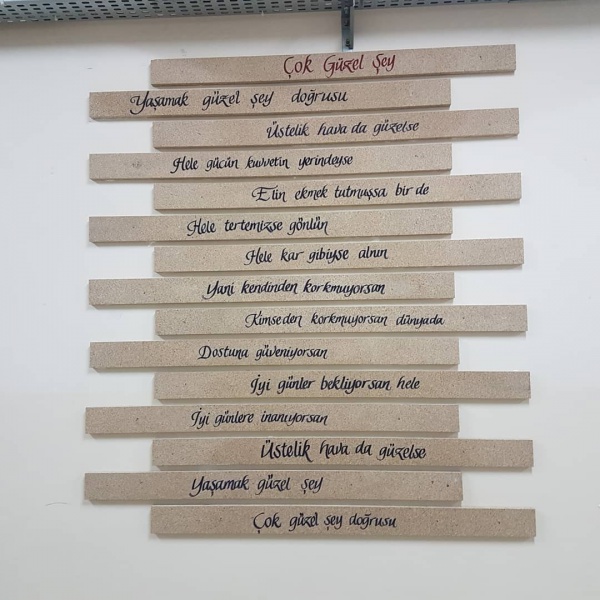 Çok Güzel Şey
Yaşamak güzel şey doğrusu
Üstelik hava da güzelse
Hele gücün kuvvetin yerindeyse
Elin ekmek tutmuşsa bir de
Hele tertemizse gönlün
Hele kar gibiyse alnın
Yani kendinden korkmuyorsan
Kimseden korkmuyorsan dünyada
Dostuna güveniyorsan
İyi günler bekliyorsan hele
İyi günlere inanıyorsan
Üstelik hava da güzelse
Yaşamak güzel şey
Çok güzel şey doğrusu